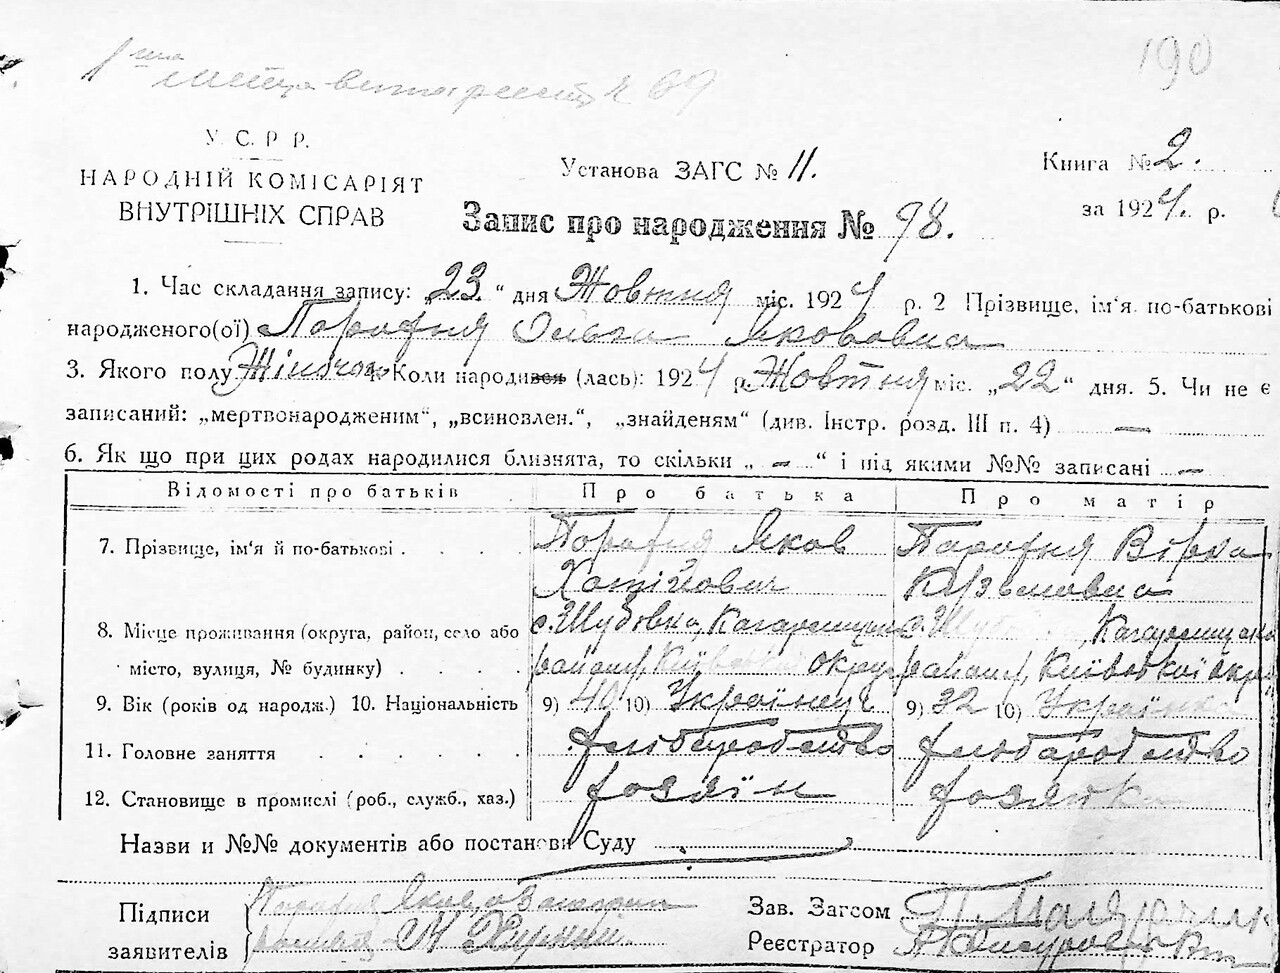 190
У. С. Р Р.
НАРОДНІЙ КОМІСАРІЯТ
ВНУТРІШНІХ СПРАВ
Установа ЗАГС № 11.
Книга № 2.
за 1924. р.
Запис про народження № 98.
1. Час складання запису: „23.“ дня Жовтня міс. 1924 р. 2 Прізвище, ім‘я. по-батькові
народженого(ої) Парафня Олька Яковавна
3. Якого полу Жіночого 4. Коли народився (лась): 1924 р. Жовтня міс. „22“ дня. 5. Чи не є
записаний: „мертвонародженим“, „всиновлен.“, „знайденям“ (див. Інстр. розд. III п. 4) —
6. Як що при цих родах народилися близнята, то скільки „ – “ і під якими №№ записані –
Відомості про батьків Про батька Про матір
7. Прізвище, ім‘я й по-батькові . . . . Порафня Яков Парафня Вірка
Кузьмовна
8. Місце проживання (округа, район, село або с. Шубовка, Кагарлицьк с. Кагарлицьк
місто, вулиця, № будинку) . . . району, Київської округ району, Київської окр
9. Вік (років од народж.) 10. Національність 9) 40 10) Українець 9) 32 10) Українка
11. Головне заняття . . . . . хліборобство хліборобство
12. Становище в промислі (роб., служб., хаз.) хозяїн хозяйка
Назви и №№ документів або постанови Суду
Підписи
заявителів
Парафня Яков, а
Зав. Загсом
Реєстратор